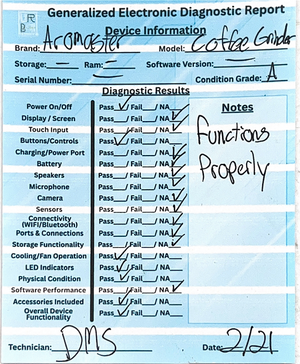 Generalized Electronic Diagnostic Report
Device Information
Brand: Aromaster Model: Coffee Grinder
Storage: — Ram: — Software Version: —
Serial Number: — Condition Grade: A
Diagnostic Results
Power On/Off Pass ✓/ Fail / NA
Display / Screen Pass / Fail / NA ✓
Touch Input Pass / Fail / NA ✓
Buttons/Controls Pass ✓/ Fail / NA
Charging/Power Port Pass / Fail / NA ✓
Battery Pass / Fail / NA ✓
Speakers Pass / Fail / NA ✓
Microphone Pass / Fail / NA ✓
Camera Pass / Fail / NA ✓
Sensors Pass / Fail / NA ✓
Connectivity (WIFI/Bluetooth) Pass / Fail / NA ✓
Ports & Connections Pass / Fail / NA ✓
Storage Functionality Pass / Fail / NA ✓
Cooling/Fan Operation Pass ✓/ Fail / NA
LED Indicators Pass ✓/ Fail / NA
Physical Condition Pass ✓/ Fail / NA
Software Performance Pass / Fail / NA ✓
Accessories Included Pass ✓/ Fail / NA
Overall Device Functionality Pass ✓/ Fail / NA
Notes
Functions
Properly
Technician: DMS Date: 2/21